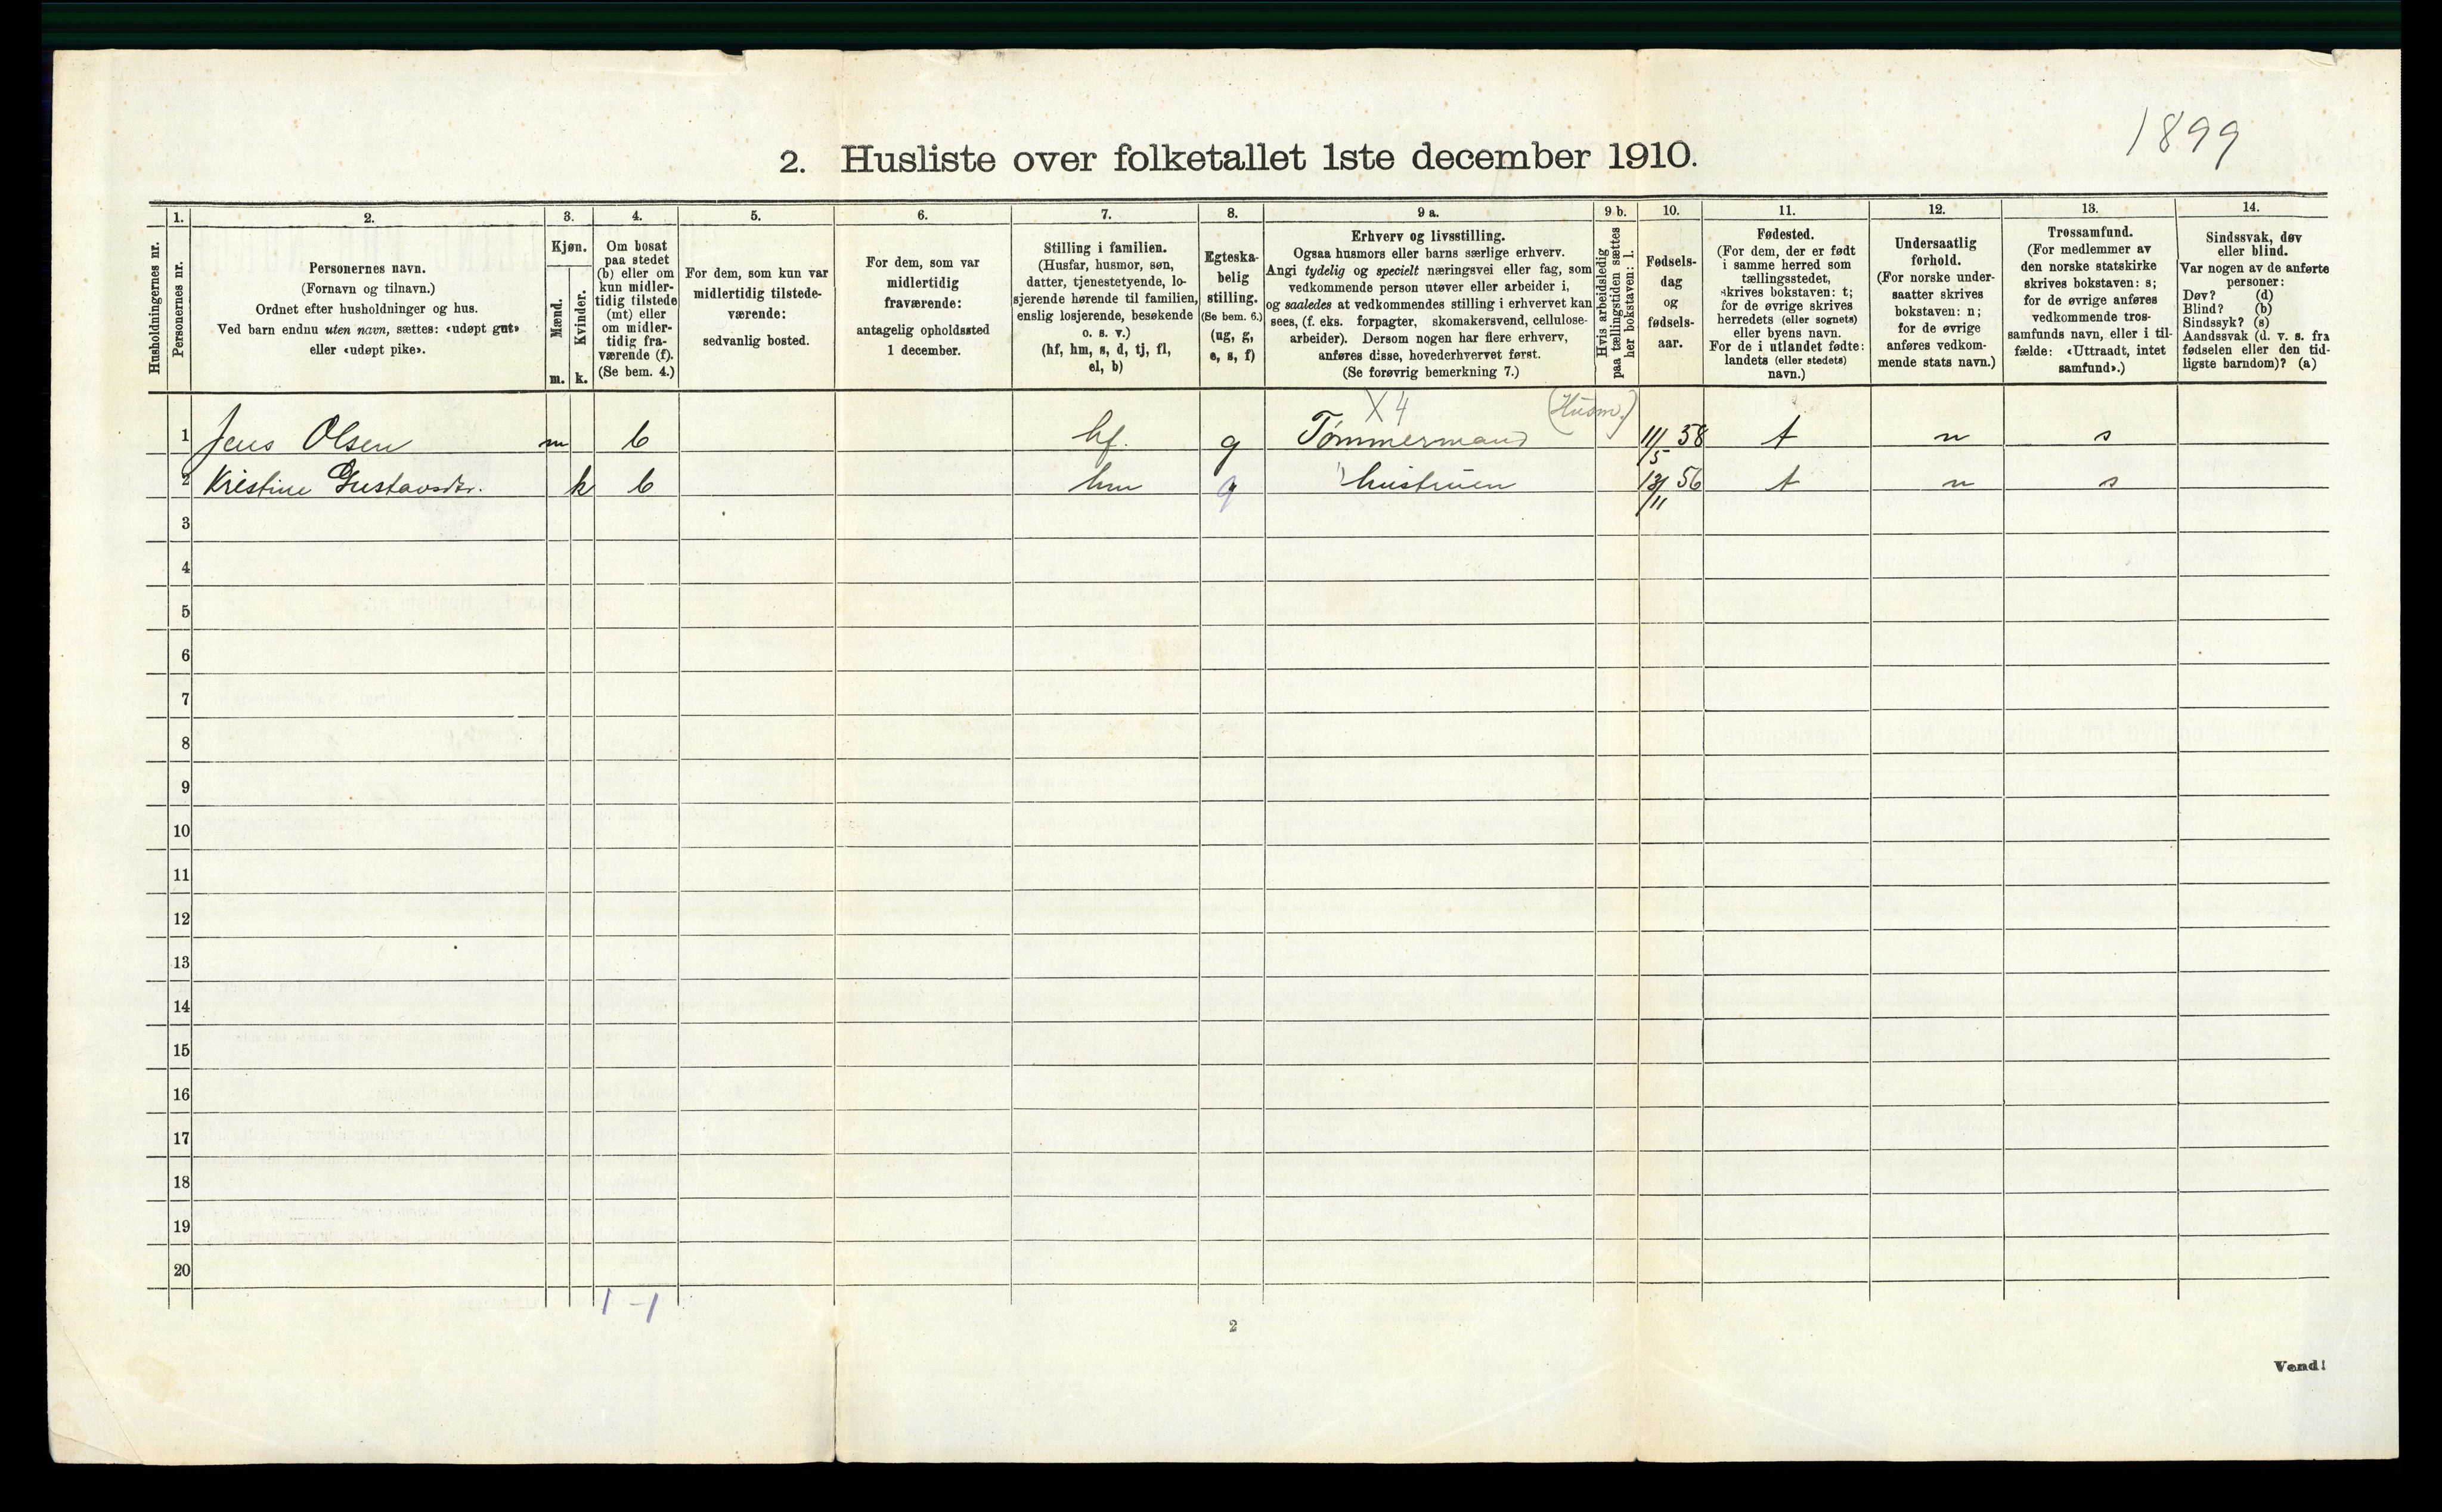 1899
2. Husliste over folketallet 1ste december 1910.
Husholdningernes nr.
1.
Personernes nr.
2.
Personernes navn.
(Fornavn og tilnavn.)
Ordnet efter husholdninger og hus.
Ved barn endnu uten navn, sættes: «udøpt gut»
eller «udøpt pike».
3.
Kjøn.
Mænd.
m.
Kvinder.
k.
4.
Om bosat
paa stedet
(b) eller om
kun midler-
tidig tilstede
(mt) eller
om midler-
tidig fra-
værende (f).
(Se bem. 4.)
5.
For dem, som kun var
midlertidig tilstede-
værende:
sedvanlig bosted.
6.
For dem, som var
midlertidig
fraværende:
antagelig opholdssted
1 december.
7.
Stilling i familien.
(Husfar, husmor, søn,
datter, tjenestetyende, lo-
sjerende hørende til familien,
enslig losjerende, besøkende
o. s. v.)
(hf, hm, s, d, tj, fl,
el, b)
8.
Egteska-
belig
stilling.
(Se bem. 6.)
(ug, g,
e, s, f)
9 a.
Erhverv og livsstilling.
Ogsaa husmors eller barns særlige erhverv.
Angi tydelig og specielt næringsvei eller fag, som
vedkommende person utøver eller arbeider i,
og saaledes at vedkommendes stilling i erhvervet kan
sees, (f. eks. forpagter, skomakersvend, cellulose-
arbeider). Dersom nogen har flere erhverv,
anføres disse, hovederhvervet først.
(Se forøvrig bemerkning 7.)
9 b.
Hvis arbeidsledig
paa tællingstiden sættes
her bokstaven: l.
10.
Fødsels-
dag
og
fødsels-
aar.
11.
Fødested.
(For dem, der er født
i samme herred som
tællingsstedet,
skrives bokstaven: t;
for de øvrige skrives
herredets (eller sognets)
eller byens navn.
For de i utlandet fødte:
landets (eller stedets)
navn.)
12.
Undersaatlig
forhold.
(For norske under-
saatter skrives
bokstaven: n;
for de øvrige
anføres vedkom-
mende stats navn.)
13.
Trossamfund.
(For medlemmer av
den norske statskirke
skrives bokstaven: s;
for de øvrige anføres
vedkommende tros-
samfunds navn, eller i til-
fælde: «Uttraadt, intet
samfund».)
14.
Sindssvak, døv
eller blind.
Var nogen av de anførte
personer:
Døv? (d)
Blind? (b)
Sindssyk? (s)
Aandssvak (d. v. s. fra
fødselen eller den tid-
ligste barndom)? (a)
X4 (Husm.)
1 Jens Olsen m b hf. g Tømmermand 11/5 58 t n s
2 Kristine Gustavsdtr. k b hm g hustruen 13/11 56 t n s
3
4
5
6
7
8
9
10
11
12
13
14
15
16
17
18
19
20
1 - 1
2
Vend!